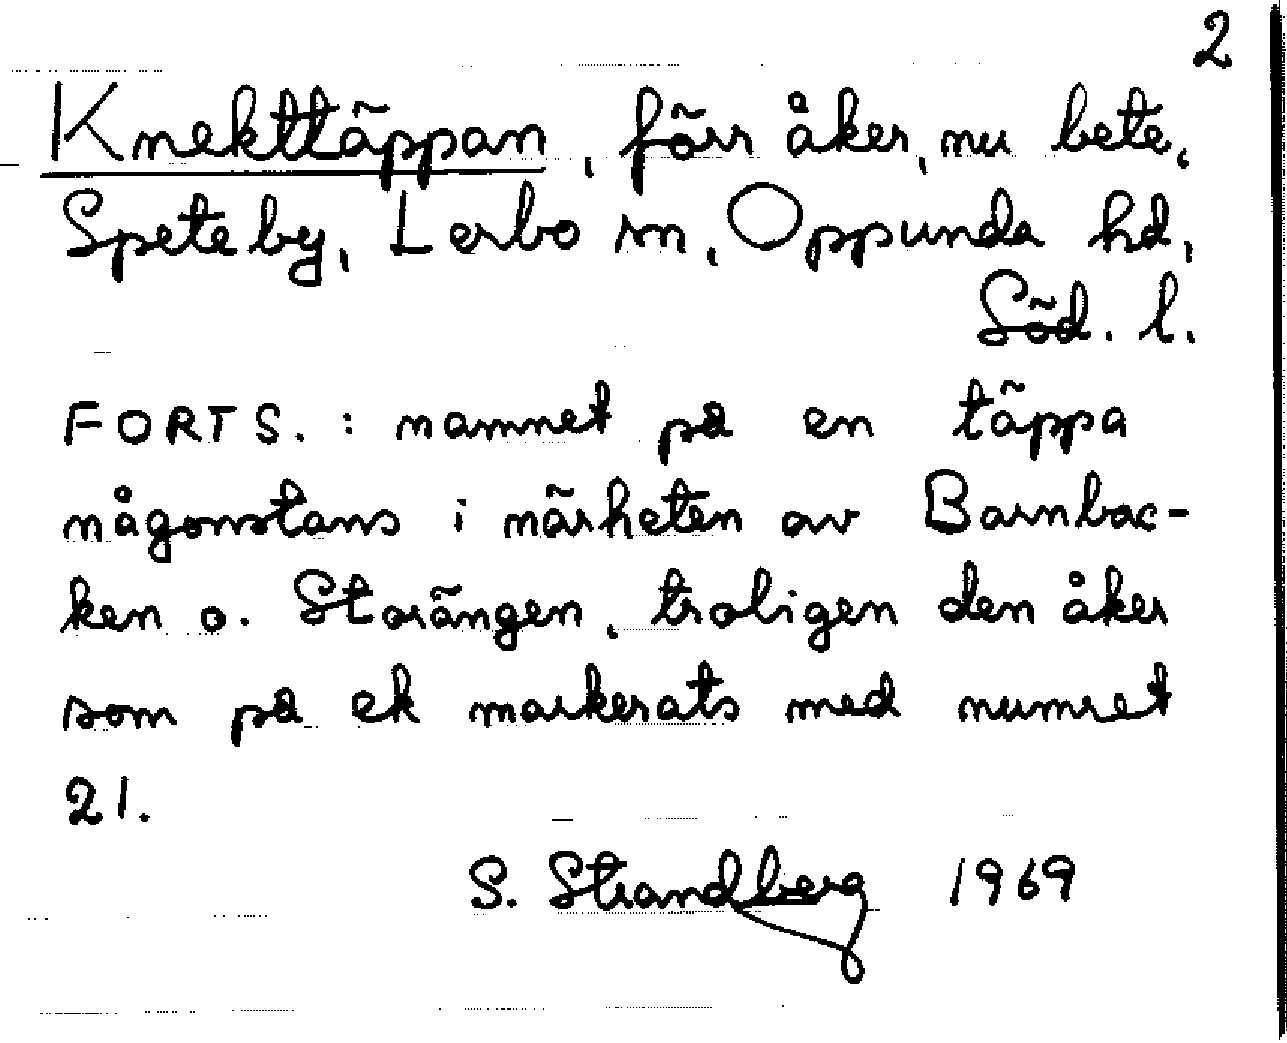 2
Knekttäppan, förr åker, nu bete,
Speteby, Lerbo sn, Oppunda hd,
Söd. l.
FORTS.: namnet på en täppa
någonstans i närheten av Barnbac-
ken o. Storängen, troligen den åker
som på ek markerats med numret
21.
S. Strandberg 1969